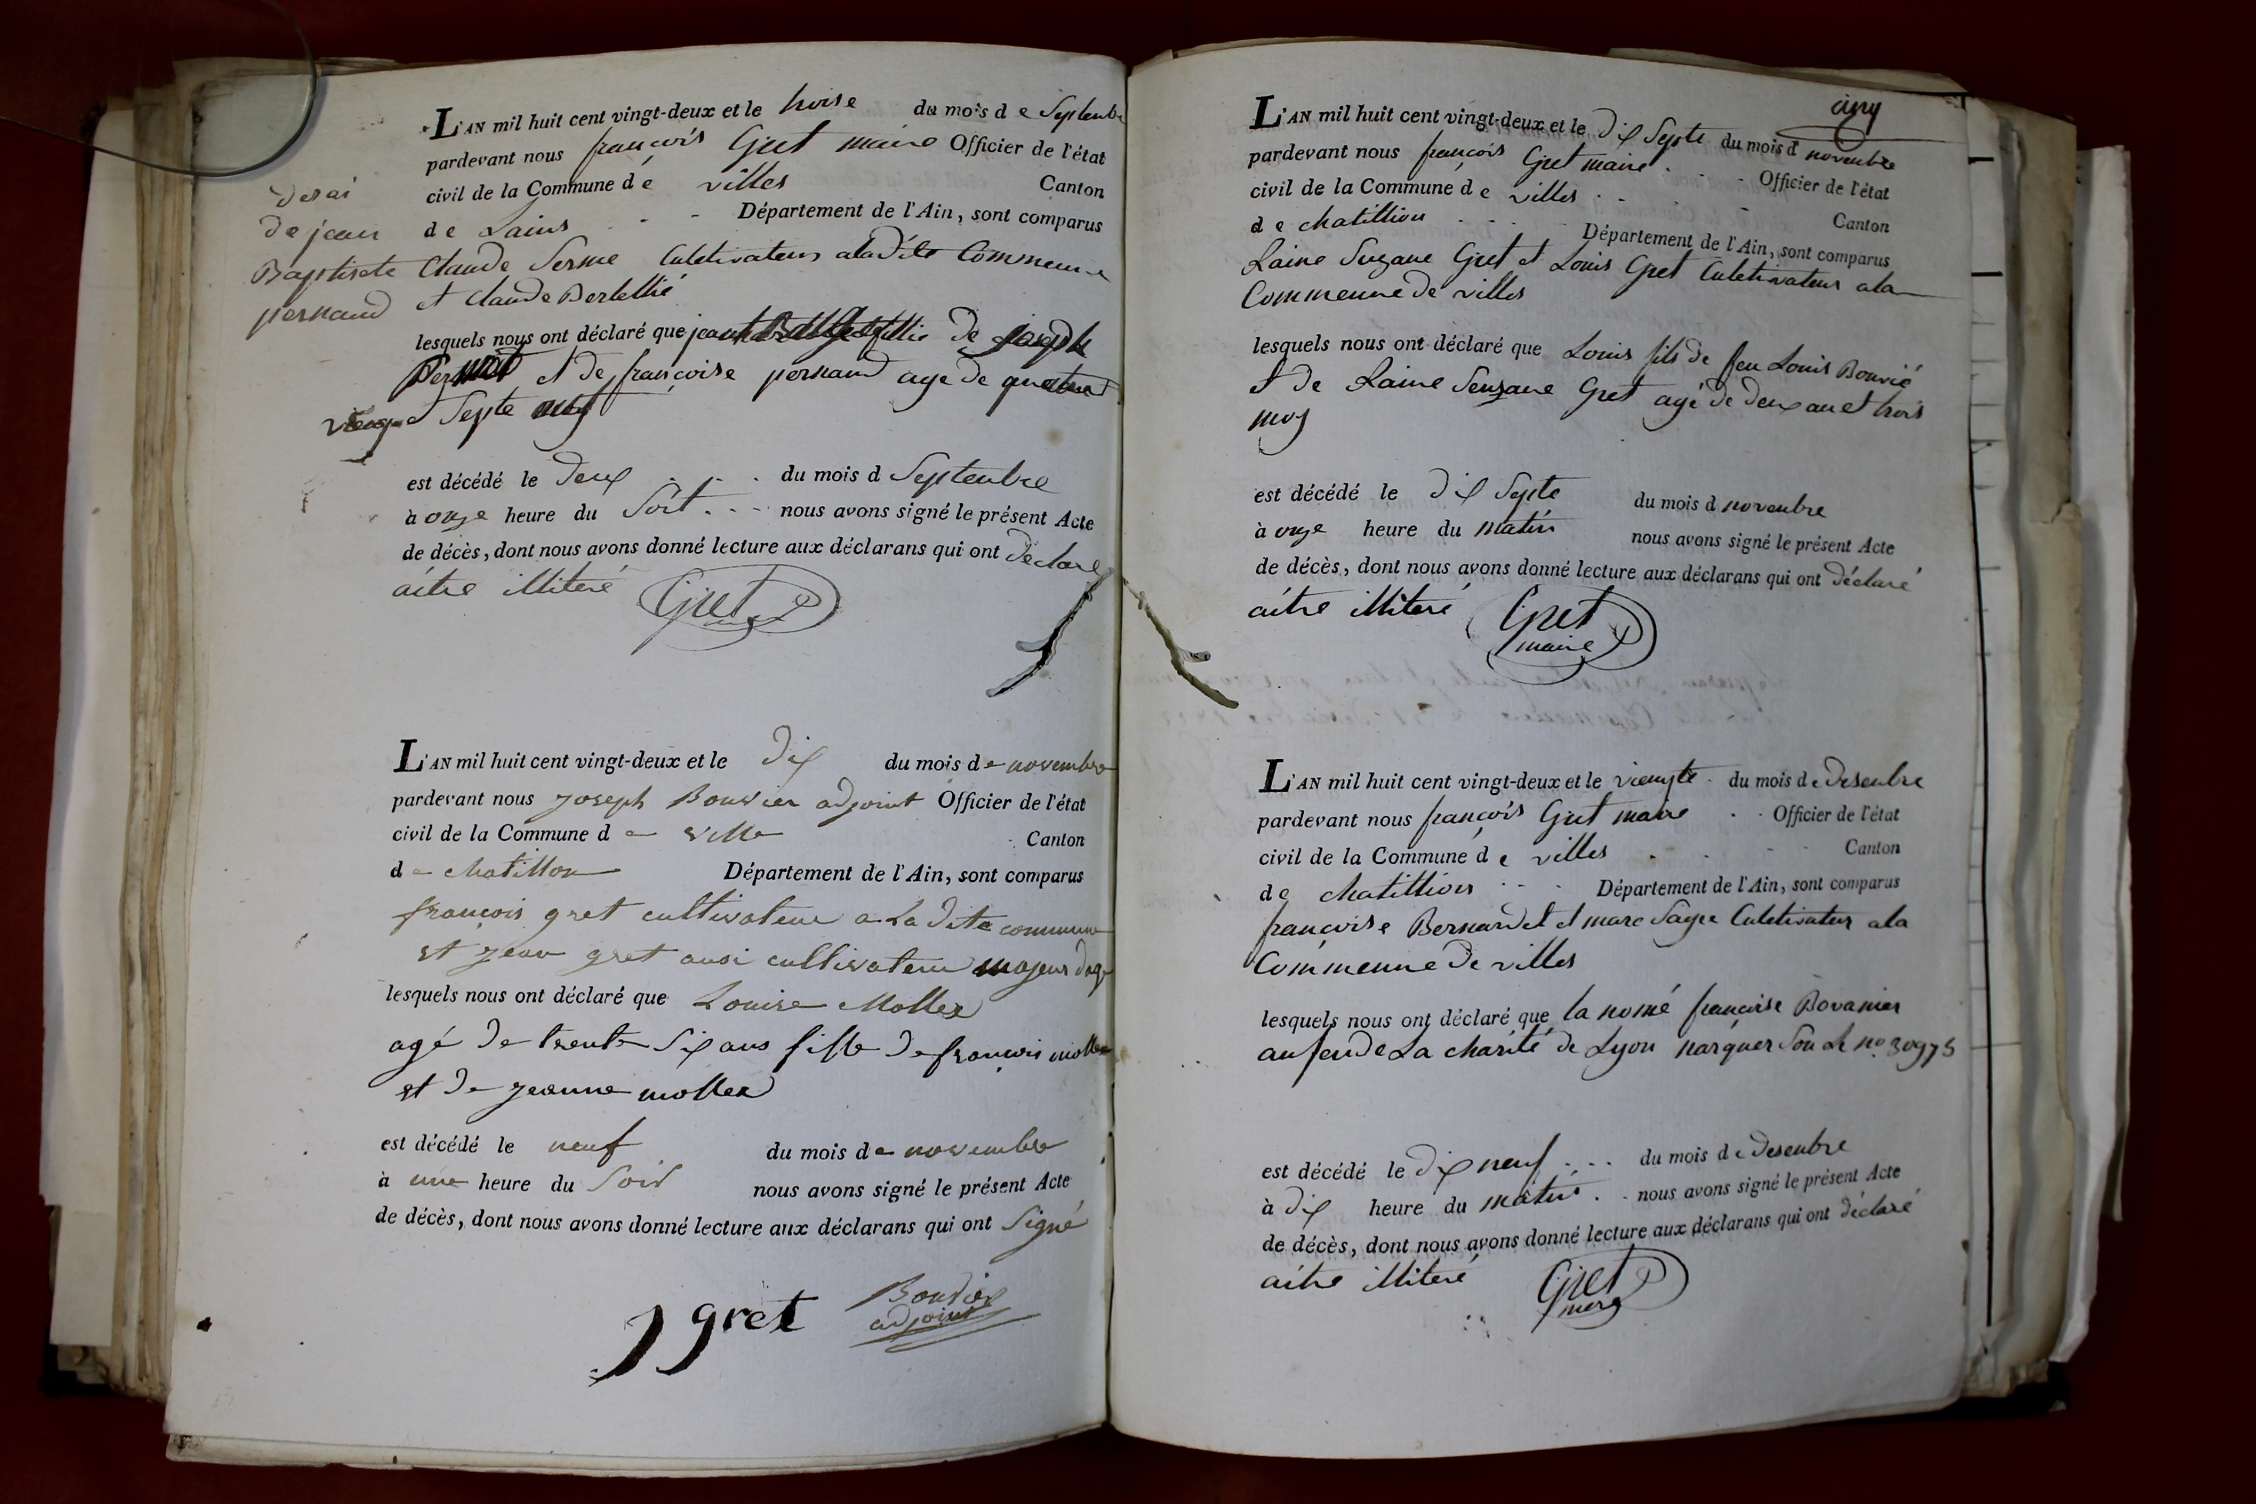 L'AN mil huit cent vingt-deux et le troise du mois de Septenbre
pardevant nous françois Gret maire Officier de l'état
civil de la Commune de villes Canton
de Lains Département de l'Ain, sont comparus
Claude Serme Culetivateurs aladite Commeune
et Claude Bertellié
desai
de jean
Baptisete
pernaud
lesquels nous ont déclaré que jean de joseph
et de françoise pernaud age de quatere
viengt Septe
est décédé le deux du mois d Septenbre
à onze heure du Soit nous avons signé le présent Acte
de décès, dont nous avons donné lecture aux déclarans qui ont déclaré
aitre illiteré Gret
L'AN mil huit cent vingt-deux et le dix du mois de novembre
pardevant nous joseph Bouvier adjoint Officier de l'état
civil de la Commune de ville Canton
de chatillon Département de l'Ain, sont comparus
françois gret cultivateur a la dite commune
et jean gret ausi cultivateur majeur dage
lesquels nous ont déclaré que Louise Mollex
agé de trente six ans fille de francois mollex
et de jeanne mollex
est décédé le neuf du mois de novembre
à une heure du soir nous avons signé le présent Acte
de décès, dont nous avons donné lecture aux déclarans qui ont signé
J gret Bouvier
adjoint
cinq
L'AN mil huit cent vingt-deux et le dix Septe du mois d novenbre
pardevant nous françois Gret maire Officier de l'état
civil de la Commune de villes Canton
de chatillion Département de l'Ain, sont comparus
Raine Suzane Gret et Louis Gret Culetivateur ala
Commeune de villes
lesquels nous ont déclaré que Louis fils de feu Louis Bouvié
et de Raine Seuzane Gret agé de deux an et trois
moy
est décédé le dix Septe du mois d novenbre
à onze heure du matin nous avons signé le présent Acte
de décès, dont nous avons donné lecture aux déclarans qui ont déclaré
aitre illiteré Gret
maire
L'AN mil huit cent vingt-deux et le viengte du mois de desenbre
pardevant nous françois Gret maire Officier de l'état
civil de la Commune de villes Canton
de chatillion Département de l'Ain, sont comparus
françoise Bernardet et marc Culetivateur ala
Commeune de villes
lesquels nous ont déclaré que la nomé françoise Bovanier
anfende La charité de Lyon Son Le no 30975
est décédé le dix neuf du mois de desenbre
à dix heure du matin nous avons signé le présent Acte
de décès, dont nous avons donné lecture aux déclarans qui ont déclaré
aitre illiteré Gret